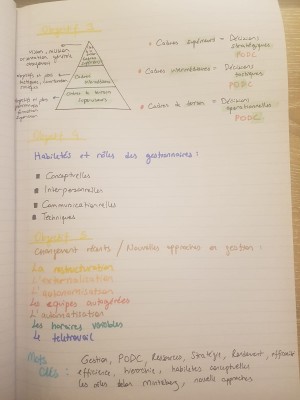 Objectif 3:
vision, mission,
orientation générale
Cadres supérieurs = Décisions
stratégiques
PODC
Cadres intermédiaires = Décisions
tactiques
PODC
Cadres de terrain = Décisions
opérationnelles
PODC
Cadres
intermédiaires
Cadres de terrain
Superviseurs
Objectif 4:
Habiletés et rôles des gestionnaires :
Conceptuelles
Interpersonnelles
Communicationnelles
Techniques
Objectif 5:
Changement récents / Nouvelles approches en gestion :
La restructuration
L'externalisation
L'automatisation
Les équipes autogérées
L'automatisation
Les horaires variables
Le télétravail
Mots
clés :
Gestion, PODC, Ressources, Stratégie, Rendement, efficacité
efficience, hiérarchie, habiletés conceptuelles
les rôles selon Mintzberg, nouvelle approches